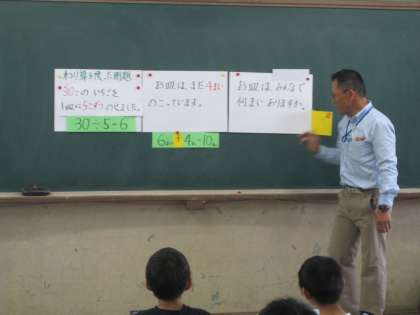 わり算を使った問題
30このいちごを
1皿に5こずつのせました。
30÷5=6
お皿は、まだ4まい
のこっています。
6まい+4まい=10まい
お皿は、みんなで
何まいありますか。